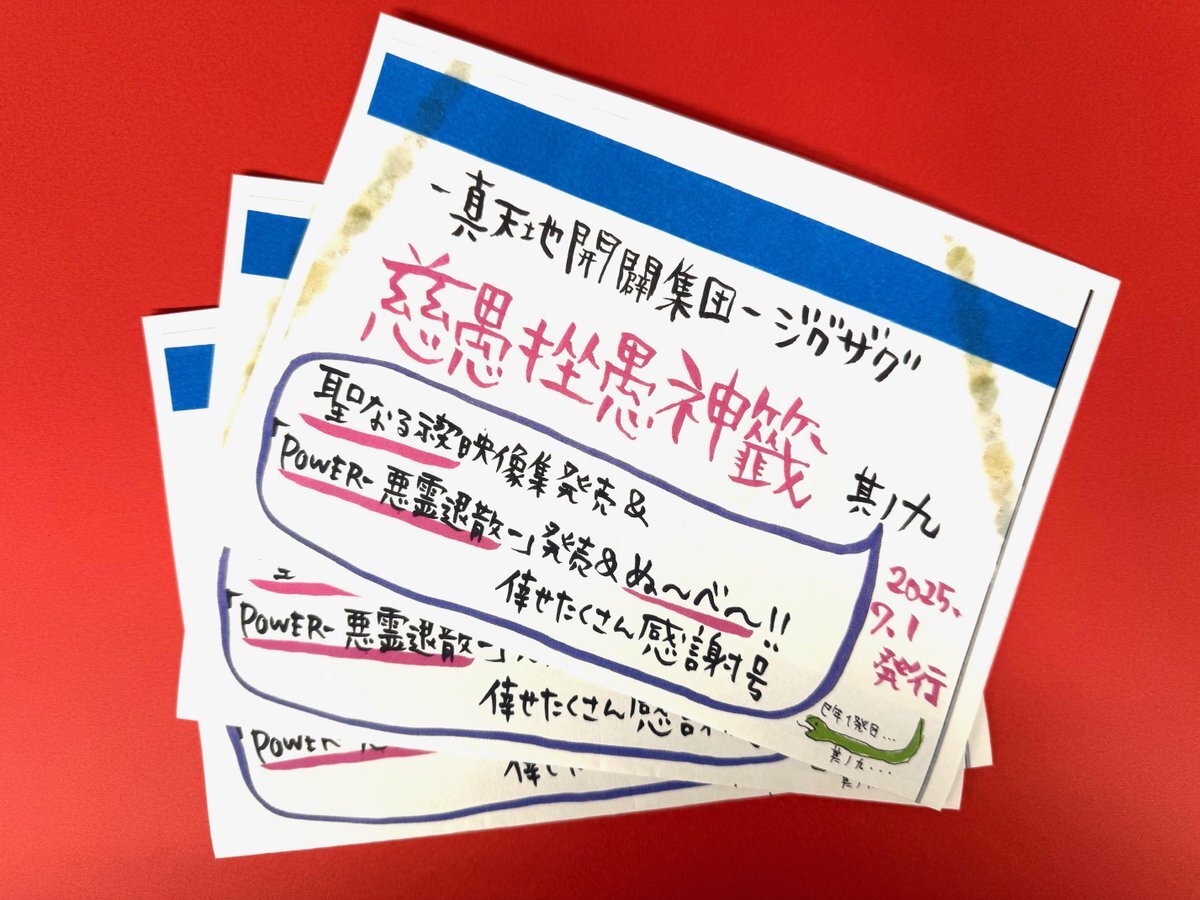 -真天地開闢集団-ジグザグ
慈愚挫愚神籤
其ノ九
聖なる禊映像集発売&
「POWER-悪霊退散-」発売&ぬ〜べ〜!!
倖せたくさん感謝号
2025.
7.1
発行
巳年1発目...
其ノ九...
「POWER-悪霊退散-」
倖せたくさん感謝
POWER-
倖せ
其ノ...